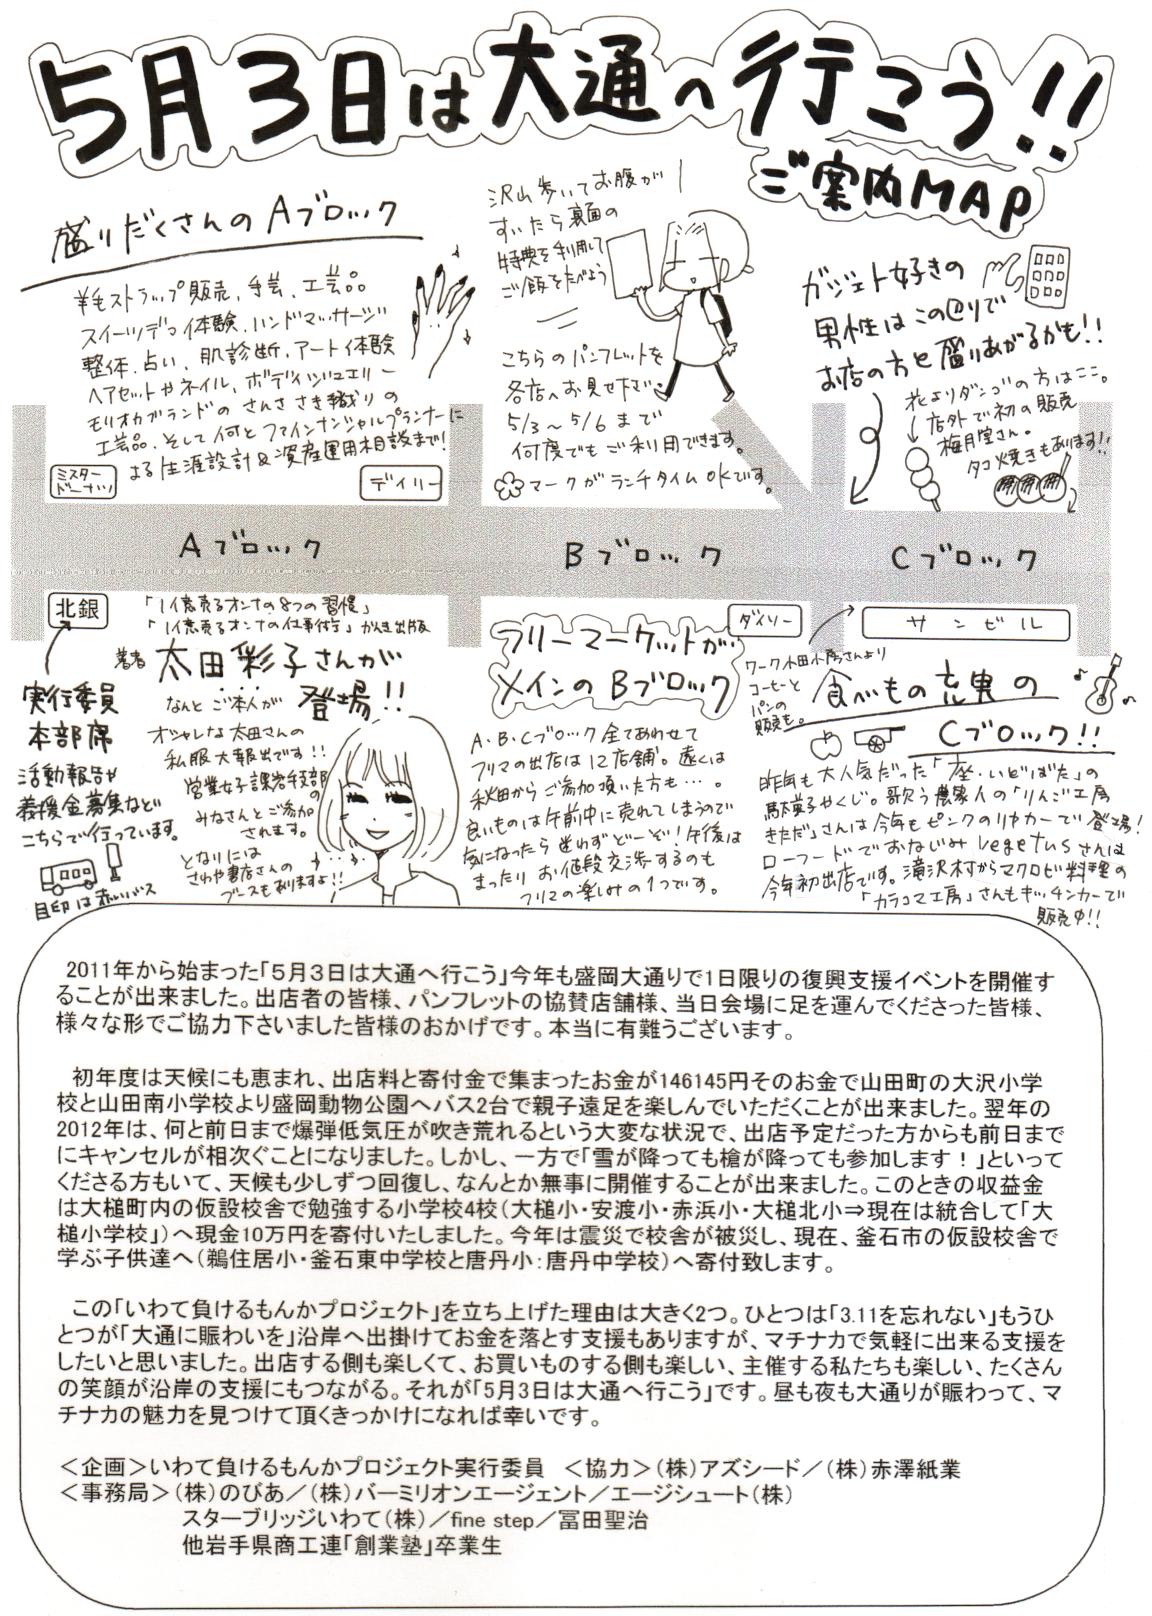 5月3日は大通へ行こう!!
ご案内MAP
盛りだくさんのAブロック
羊毛ストラップ販売、手芸、工芸品
スイーツデコ体験、ハンドマッサージ
整体、占い、肌診断、アート体験
ヘアセットやネイル、ボディジュエリー
モリオカブランドの さんささき織りの
工芸品、そして何とファイナンシャルプランナーに
よる生涯設計&資産運用相談まで!
ミスター
ドーナツ
デイリー
沢山歩いてお腹が
すいたら裏面の
特典を利用して
ご飯をたべよう
こちらのパンフレットを
各店へお見せ下さい
5/3〜5/6まで
何度でもご利用できます。
マークがランチタイムOKです。
ガジェト好きの
男性はこの辺りで
お店の方と盛りあがるかも!!
花よりダンゴの方はここ。
店外で初の販売
梅月堂さん。
タコ焼きもあります!!
Aブロック
Bブロック
Cブロック
北銀
実行委員
本部席
活動報告や
義援金募集など
こちらで行っています。
目印は赤いバス
「1億売るオンナの8つの習慣」
「1億売るオンナの仕事術」かんき出版
著者 太田彩子さんが
なんと ご本人が 登場!!
オシャレな太田さんの
私服大放出です!!
営業女子課客技部の
みなさんとご参加
されます。
となりには
さわや書店さんの
ブースもありますよ!!
フリーマーケットが
メインのBブロック
A・B・Cブロック全てあわせて
フリマの出店は12店舗。遠くは
秋田からご参加頂いた方も…。
良いものは午前中に売れてしまうので
気になったら迷わずどーぞ!午後は
まったりお値段交渉するのも
フリマの楽しみの1つです。
ダイソー
サンビル
ワーク小田小房さんより
コーヒーと
パンの
販売も。
食べもの充実の
Cブロック!!
昨年も大人気だった「座・いどばた」の
馬太菓子やくじ。歌う農家人の「りんご工房
きただ」さんは今年もピンクのリヤカーで登場!
ローフードでおなじみvegetusさんは
今年初出店です。滝沢村からマクロビ料理の
「カラコマ工房」さんもキッチンカーで
販売中!!
2011年から始まった「5月3日は大通へ行こう」今年も盛岡大通りで1日限りの復興支援イベントを開催す
ることが出来ました。出店者の皆様、パンフレットの協賛店舗様、当日会場に足を運んでくださった皆様、
様々な形でご協力下さいました皆様のおかげです。本当に有難うございます。
初年度は天候にも恵まれ、出店料と寄付金で集まったお金が146145円そのお金で山田町の大沢小学
校と山田南小学校より盛岡動物公園へバス2台で親子遠足を楽しんでいただくことが出来ました。翌年の
2012年は、何と前日まで爆弾低気圧が吹き荒れるという大変な状況で、出店予定だった方からも前日まで
にキャンセルが相次ぐことになりました。しかし、一方で「雪が降っても槍が降っても参加します!」といって
くださる方もいて、天候も少しずつ回復し、なんとか無事に開催することが出来ました。このときの収益金
は大槌町内の仮設校舎で勉強する小学校4校(大槌小・安渡小・赤浜小・大槌北小⇒現在は統合して「大
槌小学校」)へ現金10万円を寄付いたしました。今年は震災で校舎が被災し、現在、釜石市の仮設校舎で
学ぶ子供達へ(鵜住居小・釜石東中学校と唐丹小:唐丹中学校)へ寄付致します。
この「いわて負けるもんかプロジェクト」を立ち上げた理由は大きく2つ。ひとつは「3.11を忘れない」もうひ
とつが「大通に賑わいを」沿岸へ出掛けてお金を落とす支援もありますが、マチナカで気軽に出来る支援を
したいと思いました。出店する側も楽しくて、お買いものする側も楽しい、主催する私たちも楽しい、たくさん
の笑顔が沿岸の支援にもつながる。それが「5月3日は大通へ行こう」です。昼も夜も大通りが賑わって、マ
チナカの魅力を見つけて頂くきっかけになれば幸いです。
<企画>いわて負けるもんかプロジェクト実行委員 <協力>(株)アズシード/(株)赤澤紙業
<事務局>(株)のびあ/(株)バーミリオンエージェント/エージシュート(株)
スターブリッジいわて(株)/fine step/冨田聖治
他岩手県商工連「創業塾」卒業生